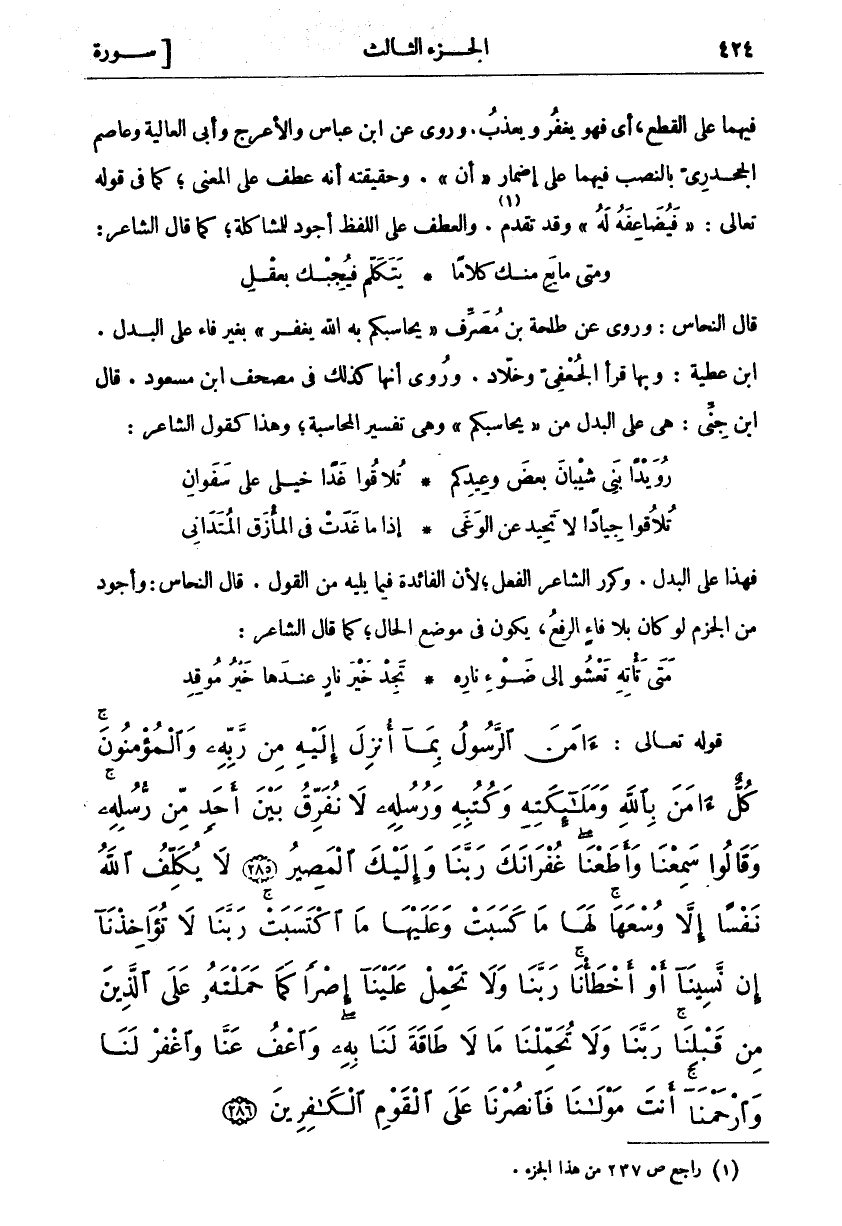 ٤٢٤ الجزء الثالث [ سورة
فيهما على القطع، أى فهو يغفرُ ويعذبُ. وروى عن ابن عباس والأعرج وأبى العالية وعاصم
الجحدرىّ بالنصب فيهما على إضمار « أن » . وحقيقته أنه عطف على المعنى ؛ كما فى قوله
تعالى : « فَيُضَاعِفَهُ لَهُ » وقد تقدم (١) . والعطف على اللفظ أجود للشاكلة؛ كما قال الشاعر:
ومتى مايَع منك كلامًا * يَتَكلّم فيُجِبْك بعقْلِ
قال النحاس : وروى عن طلحة بن مُصَرِّف « يحاسبكم به الله يغفر » بغير فاء على البدل .
ابن عطية : وبها قرأ الجُعْفِىّ وخلّاد . ورُوى أنها كذلك فى مصحف ابن مسعود . قال
ابن جِنّى : هى على البدل من « يحاسبكم » وهى تفسير المحاسبة؛ وهذا كقول الشاعر :
رُوَيْدًا بَنِى شيْبانَ بعضَ وعِيدِكم * تُلاقُوا غَدًا خيلى على سَفَوانِ
تُلاقُوا جِيادًا لا تَحِيد عن الوَغَى * إذا ما غَدَتْ فى المأزَق المُتَدَانِى
فهذا على البدل . وكرر الشاعر الفعل؛لأن الفائدة فيما يليه من القول . قال النحاس: وأجود
من الجزم لو كان بلا فاءٍ الرفعُ، يكون فى موضع الحال؛ كما قال الشاعر :
مَتَى تَأْتِهِ تَعْشُو إلى ضَوْءِ نارِه * تَجِدْ خَيْرَ نارٍ عندَها خَيْرُ مُوقِدِ
قوله تعالى : ءَامَنَ ٱلرَّسُولُ بِمَآ أُنزِلَ إِلَيْهِ مِن رَّبِّهِۦ وَٱلْمُؤْمِنُونَۚ
كُلٌّ ءَامَنَ بِٱللَّهِ وَمَلَٰٓئِكَتِهِۦ وَكُتُبِهِۦ وَرُسُلِهِۦ لَا نُفَرِّقُ بَيْنَ أَحَدٍ مِّن رُّسُلِهِۦۚ
وَقَالُوا سَمِعْنَا وَأَطَعْنَاۖ غُفْرَانَكَ رَبَّنَا وَإِلَيْكَ ٱلْمَصِيرُ ٢٨٥ لَا يُكَلِّفُ ٱللَّهُ
نَفْسًا إِلَّا وُسْعَهَاۚ لَهَا مَا كَسَبَتْ وَعَلَيْهَا مَا ٱكْتَسَبَتْۗ رَبَّنَا لَا تُؤَاخِذْنَآ
إِن نَّسِينَآ أَوْ أَخْطَأْنَاۚ رَبَّنَا وَلَا تَحْمِلْ عَلَيْنَآ إِصْرًا كَمَا حَمَلْتَهُۥ عَلَى ٱلَّذِينَ
مِن قَبْلِنَاۚ رَبَّنَا وَلَا تُحَمِّلْنَا مَا لَا طَاقَةَ لَنَا بِهِۦۖ وَٱعْفُ عَنَّا وَٱغْفِرْ لَنَا
وَٱرْحَمْنَآۚ أَنتَ مَوْلَىٰنَا فَٱنصُرْنَا عَلَى ٱلْقَوْمِ ٱلْكَٰفِرِينَ ٢٨٦
(١) راجع ص ٢٣٧ من هذا الجزء .